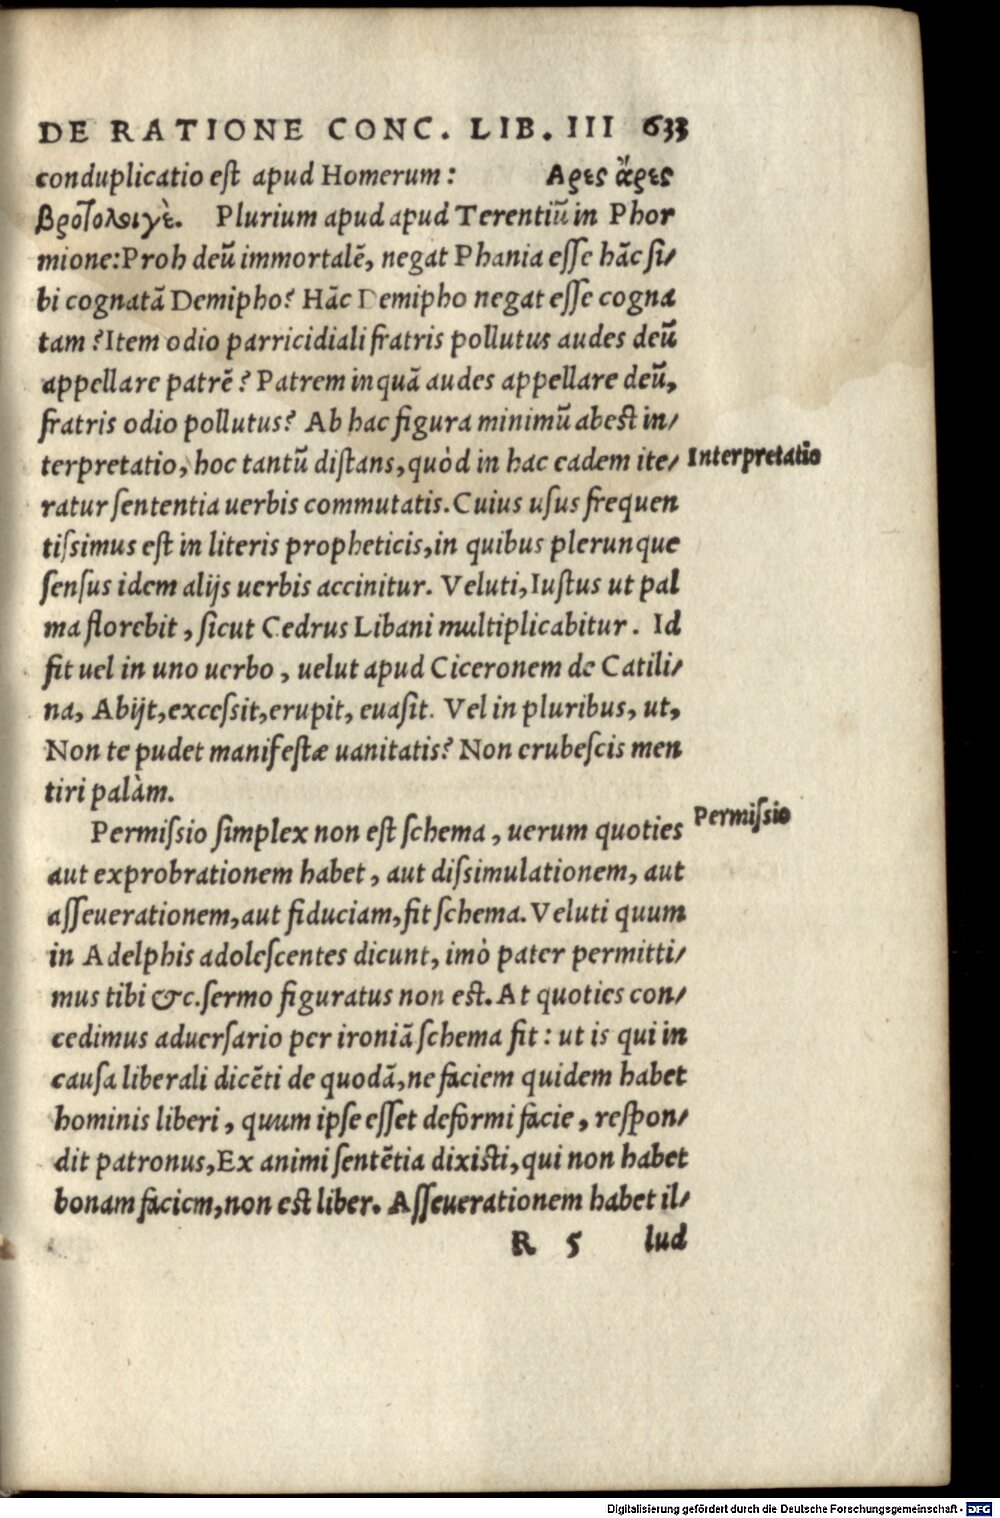 DE RATIONE CONC. LIB. III 633
conduplicatio est apud Homerum: Αρες ἄρες
βροτολοιγὲ. Plurium apud apud Terentiũ in Phor
mione:Proh deũ immortalẽ, negat Phania esse hãc si/
bi cognatã Demipho? Hãc Demipho negat esse cogna
tam? Item odio parricidiali fratris pollutus audes deũ
appellare patrẽ? Patrem inquã audes appellare deũ,
fratris odio pollutus? Ab hac figura minimũ abest in/
terpretatio, hoc tantũ distans, quòd in hac eadem ite/
Interpretatio
ratur sententia uerbis commutatis. Cuius usus frequen
tissimus est in literis propheticis, in quibus plerunque
sensus idem alijs uerbis accinitur. Veluti, Iustus ut pal
ma florebit, sicut Cedrus Libani multiplicabitur. Id
fit uel in uno uerbo, uelut apud Ciceronem de Catili/
na, Abijt, excessit, erupit, euasit. Vel in pluribus, ut,
Non te pudet manifestæ uanitatis? Non erubescis men
tiri palàm.
Permissio simplex non est schema, uerum quoties
Permissio
aut exprobrationem habet, aut dissimulationem, aut
asseuerationem, aut fiduciam, fit schema. Veluti quum
in Adelphis adolescentes dicunt, imò pater permitti/
mus tibi &c. sermo figuratus non est. At quoties con/
cedimus aduersario per ironiã schema fit: ut is qui in
causa liberali dicẽti de quodã, ne faciem quidem habet
hominis liberi, quum ipse esset deformi facie, respon/
dit patronus, Ex animi sentẽtia dixisti, qui non habet
bonam faciem, non est liber. Asseuerationem habet il/
R 5 lud
Digitalisierung gefördert durch die Deutsche Forschungsgemeinschaft - DFG